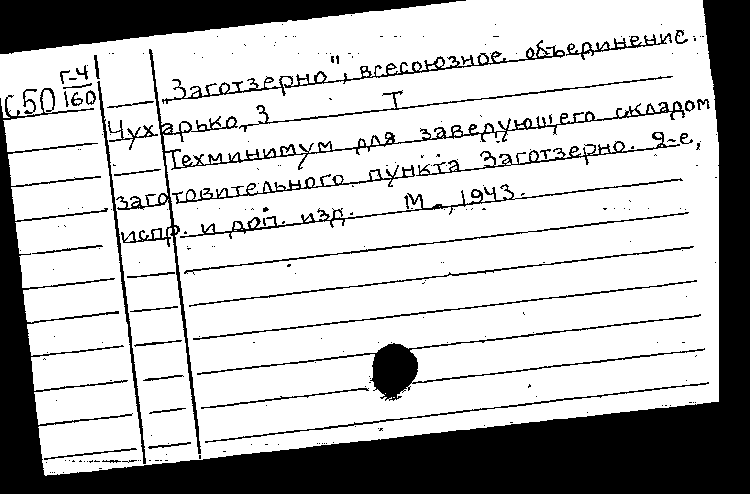 Г-4
С.50 160
„Заготзерно", всесоюзное объединение.
Чухарько, З Т
Техминимум для заведующего складом
заготовительного пункта Заготзерно. 2-е,
испр. и доп. изд. М., 1943.